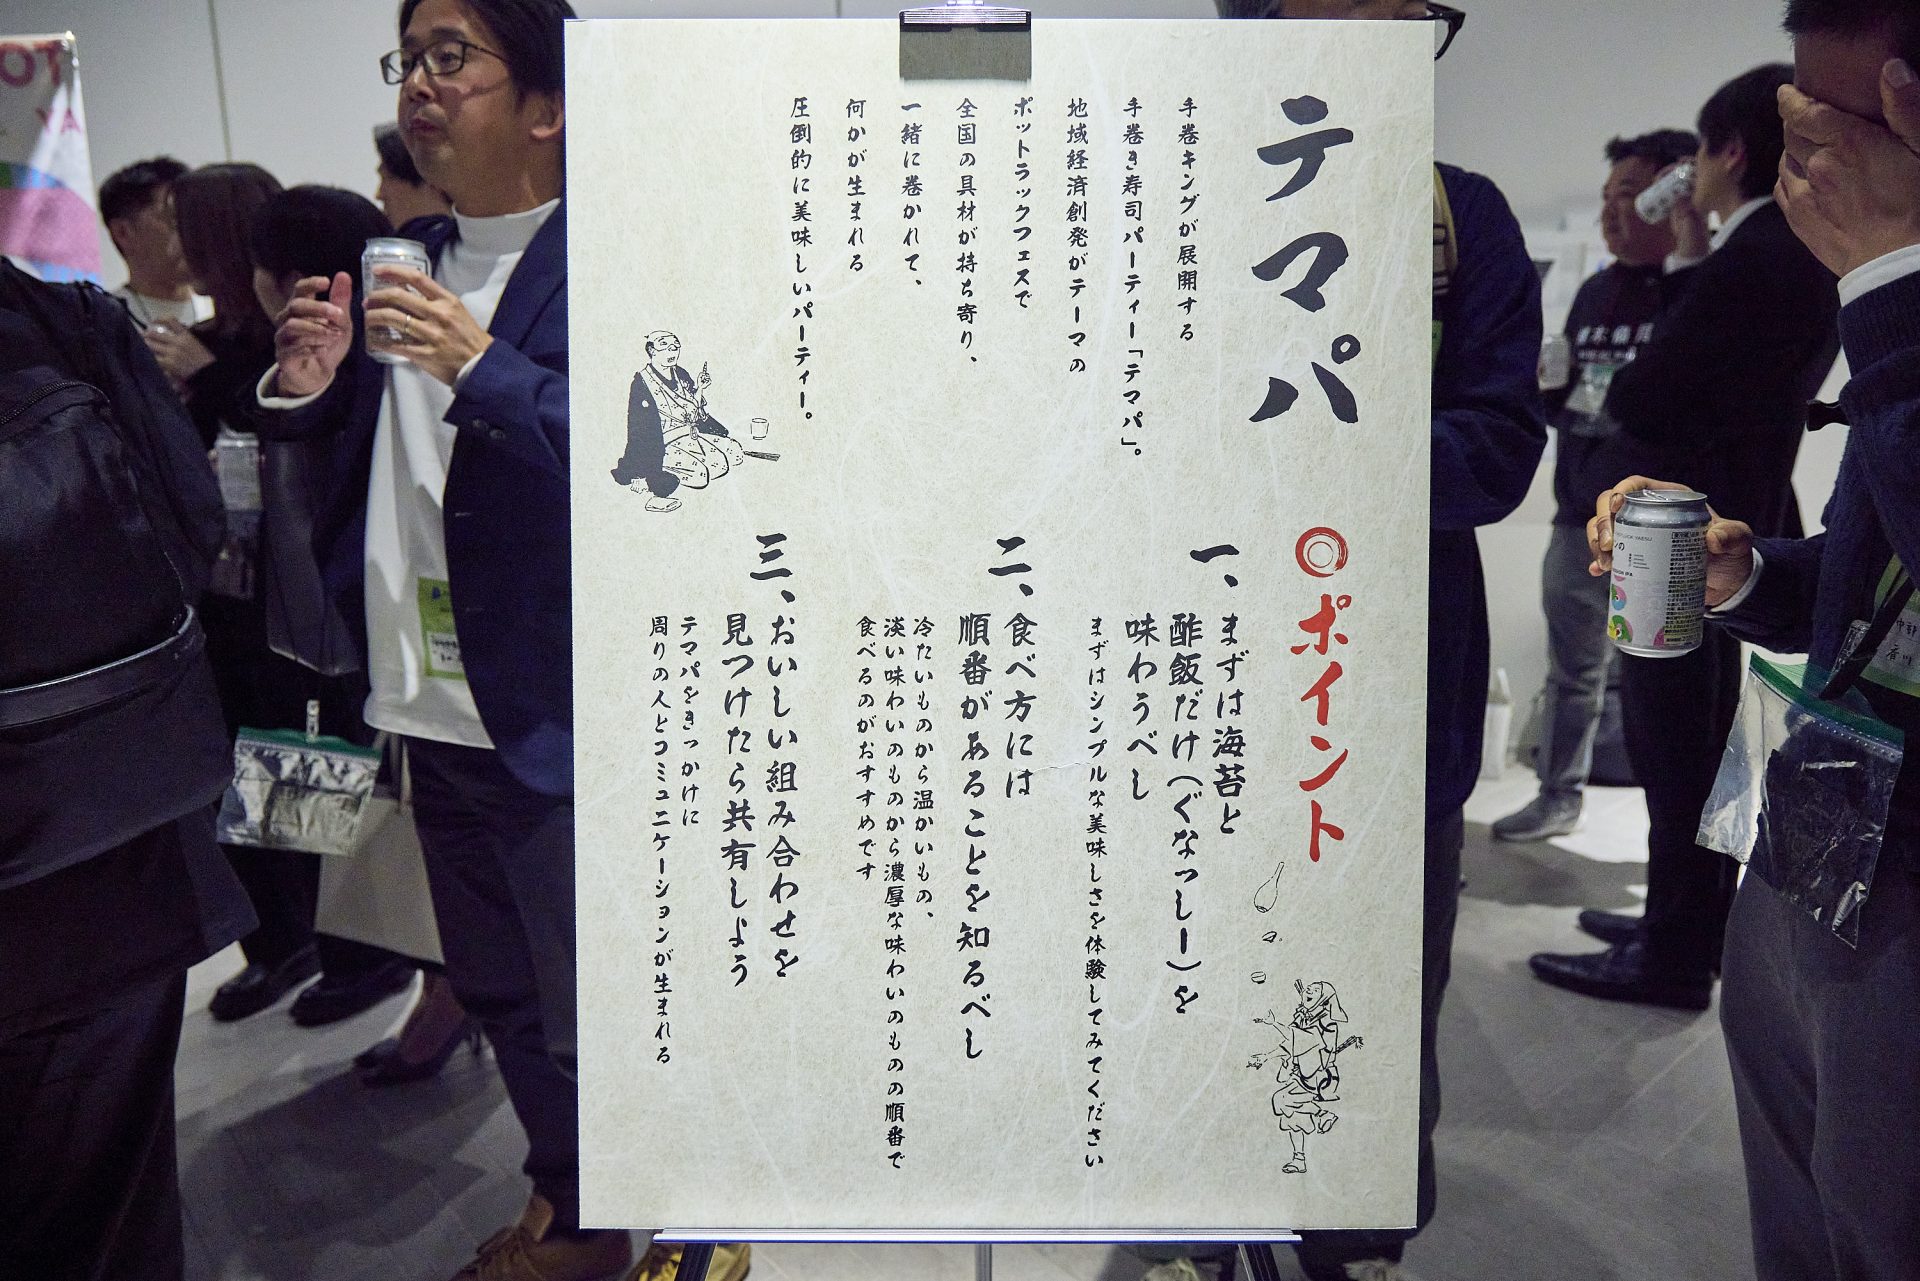 テマパ
手巻キングが展開する
手巻き寿司パーティー「テマパ」。
地域経済創発がテーマの
ポットラックフェスで
全国の具材が持ち寄り、
一緒に巻かれて、
何かが生まれる
圧倒的に美味しいパーティー。
ポイント
一、まずは海苔と
酢飯だけ(ぐなっしー)を
味わうべし
まずはシンプルな美味しさを体験してみてください
二、食べ方には
順番があることを知るべし
冷たいものから温かいもの、
淡い味わいのものから濃厚な味わいのものの順番で
食べるのがおすすめです
三、おいしい組み合わせを
見つけたら共有しよう
テマパをきっかけに
周りの人とコミュニケーションが生まれる